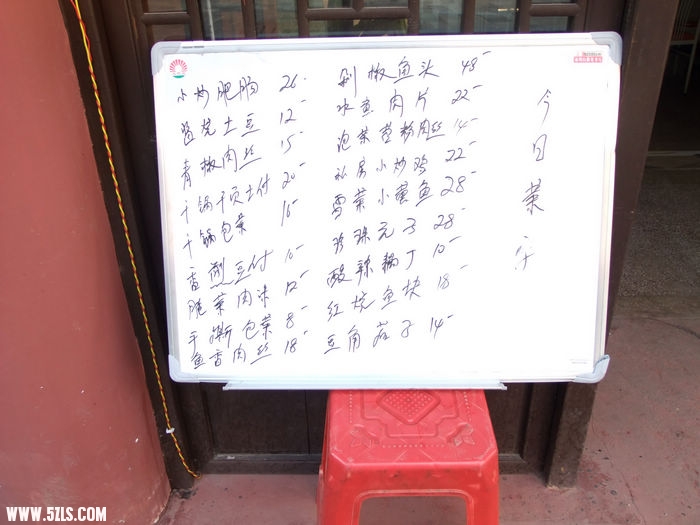 小炒肥肠 26-
盐菜土豆 12-
青椒肉丝 15-
干锅千页土付 20-
干锅包菜 16-
香煎豆付 10-
腌菜肉沫 12-
手撕包菜 8-
鱼香肉丝 18-
剁椒鱼头 48-
水煮肉片 22-
泡菜苕粉肉丝 14-
私房小炒鸡 22-
雪菜小黄鱼 28-
珍珠元子 28-
酸辣藕丁 10-
红烧鱼块 18-
豆角茄子 14-
今日菜
WWW.5ZLS.COM